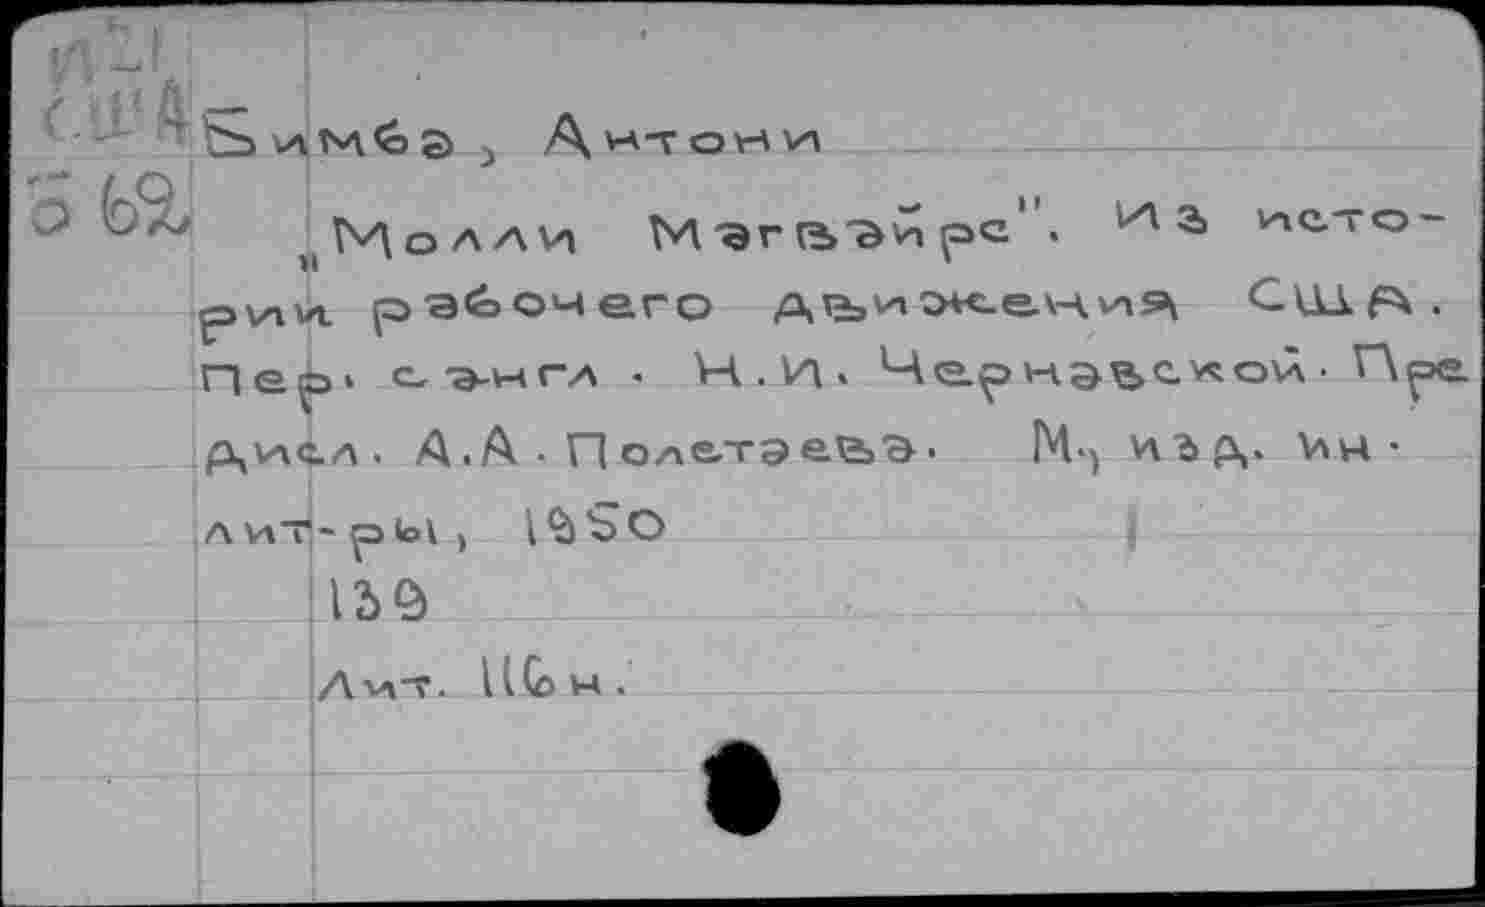 И21
США
Бимба, Антони
Б 62
„Молли Магвайрс". Из исто-
рии рабочего движения США.
Пер. с англ. Н.И. Чернавской. Пре
дисл. А.А. Полетаева. М., изд. ин.
лит-ры, 1950
139
Лит. 116 н.